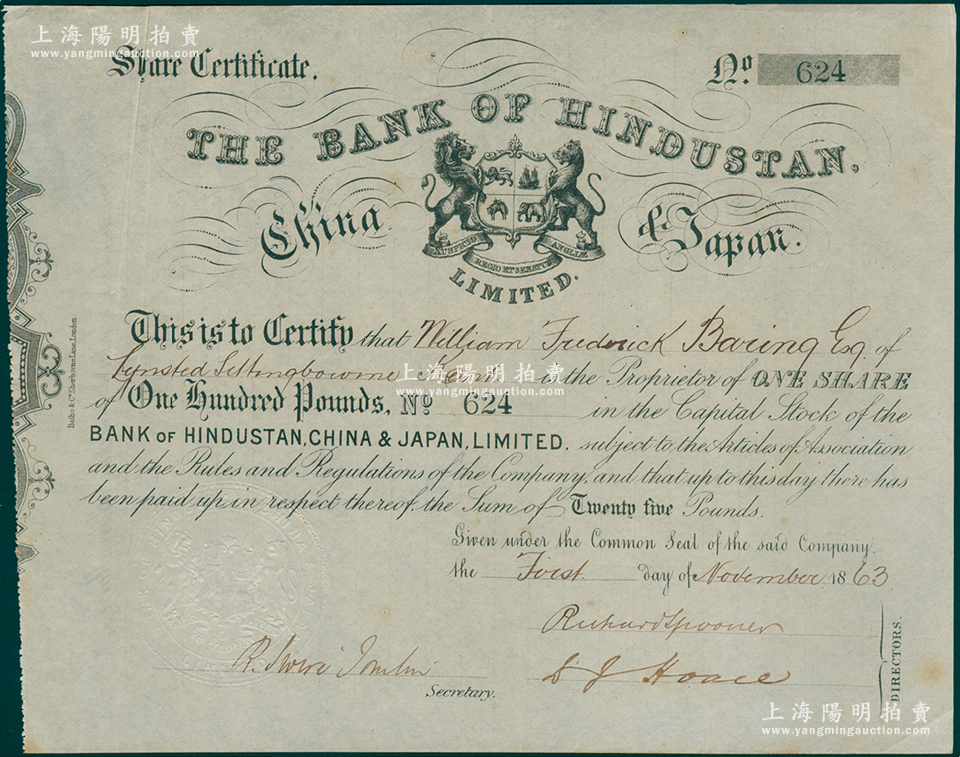 上海陽明拍賣
www.yangmingauction.com
Share Certificate.
No. 624
THE BANK OF HINDUSTAN,
China & Japan.
AUSPICIO REGIO ET SENATUS ANGLIÆ
LIMITED.
This is to Certify that William Frederick Baring Esq. of
Lynsted Sittingbourne Kent is the Proprietor of ONE SHARE
of One Hundred Pounds, No. 624 in the Capital Stock of the
BANK OF HINDUSTAN, CHINA & JAPAN, LIMITED. subject to the Articles of Association
and the Rules and Regulations of the Company, and that up to this day there has
been paid up in respect thereof, the Sum of Twenty five Pounds.
Given under the Common Seal of the said Company.
the First day of November 1863
Richard Spooner
Secretary.
DIRECTORS.
上海陽明拍賣
www.yangmingauction.com
上海陽明拍賣
www.yangmingauction.com